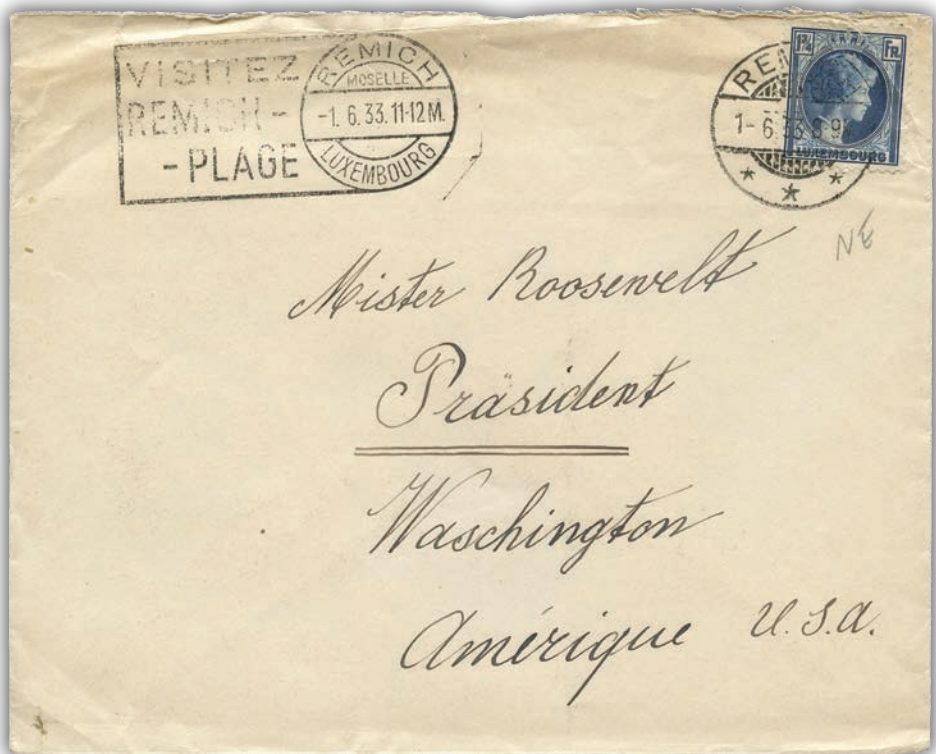 VISITEZ
REMICH -
- PLAGE
REMICH
MOSELLE
-1. 6.33.11-12M.
LUXEMBOURG
1¾ FR.
LUXEMBOURG
1- 6.33.8-9
NE
Mister Roosewelt
Präsident
Waschington
Amérique U.S.A.